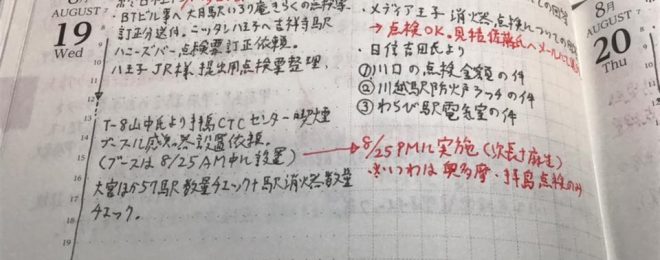 8月
AUGUST
19
Wed
・BTビル事へ 大月駅いろり庵きらくの点検票
訂正分送付。ニッタレ八王子へ吉祥寺駅
ハニーズバー点検票訂正依頼。
八王子JR様 提出用点検票整理。
T-8山中氏より拝島CTCセンター喫煙
ブース感知器設置依頼。
(ブースは8/25AM中に設置)
大宮ほか57駅数量チェック+駅消火器数量
チェック。
7
8
9
10
11
12
13
14
15
16
17
18
19
・メディア王子 消火器点検についての回答
→点検OK。見積佐藤氏へメールにて
・日信吉田氏より
①川口の点検金額の件
②川越駅防火戸ラッチの件
③わらび駅電気室の件
→8/25PMに実施(次長+麻生)
※いわつは奥多摩・拝島点検のみ
8月
AUGUST
20
Thu
7
8
9
10
11
12
13
14
15